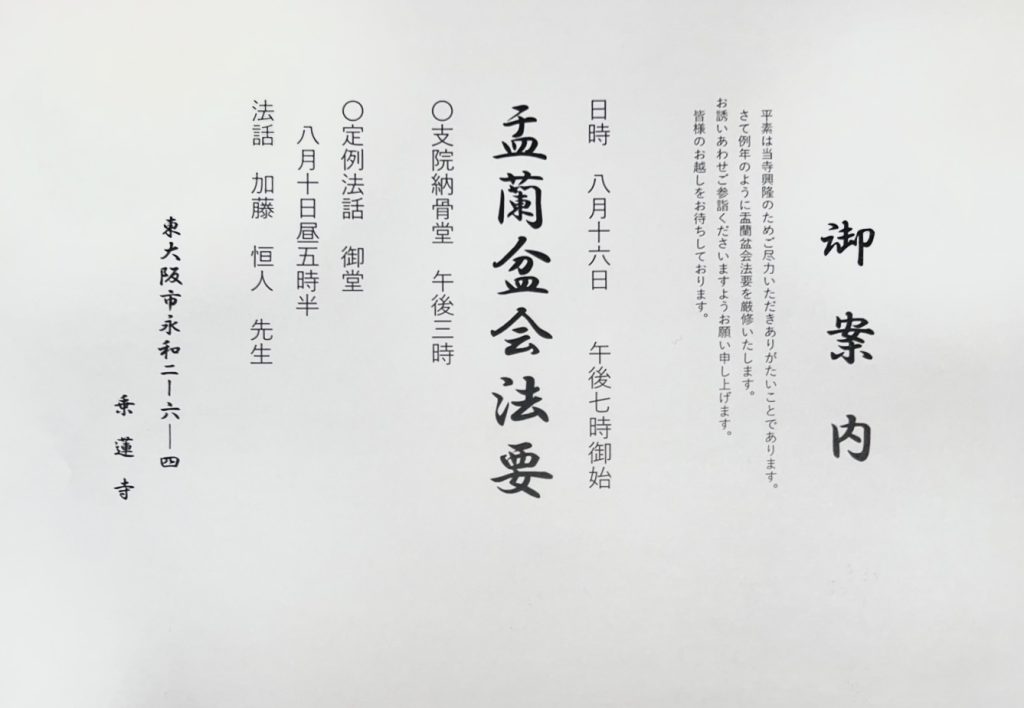 御案内
平素は当寺興隆のためご尽力いただきありがたいことであります。
さて例年のように盂蘭盆会法要を厳修いたします。
お誘いあわせご参詣くださいますようお願い申し上げます。
皆様のお越しをお待ちしております。
日時　八月十六日　午後七時御始
盂蘭盆会法要
〇支院納骨堂　午後三時
〇定例法話　御堂
八月十日昼五時半
法話　加藤　恒人　先生
東大阪市永和二ー六―四
乗蓮寺